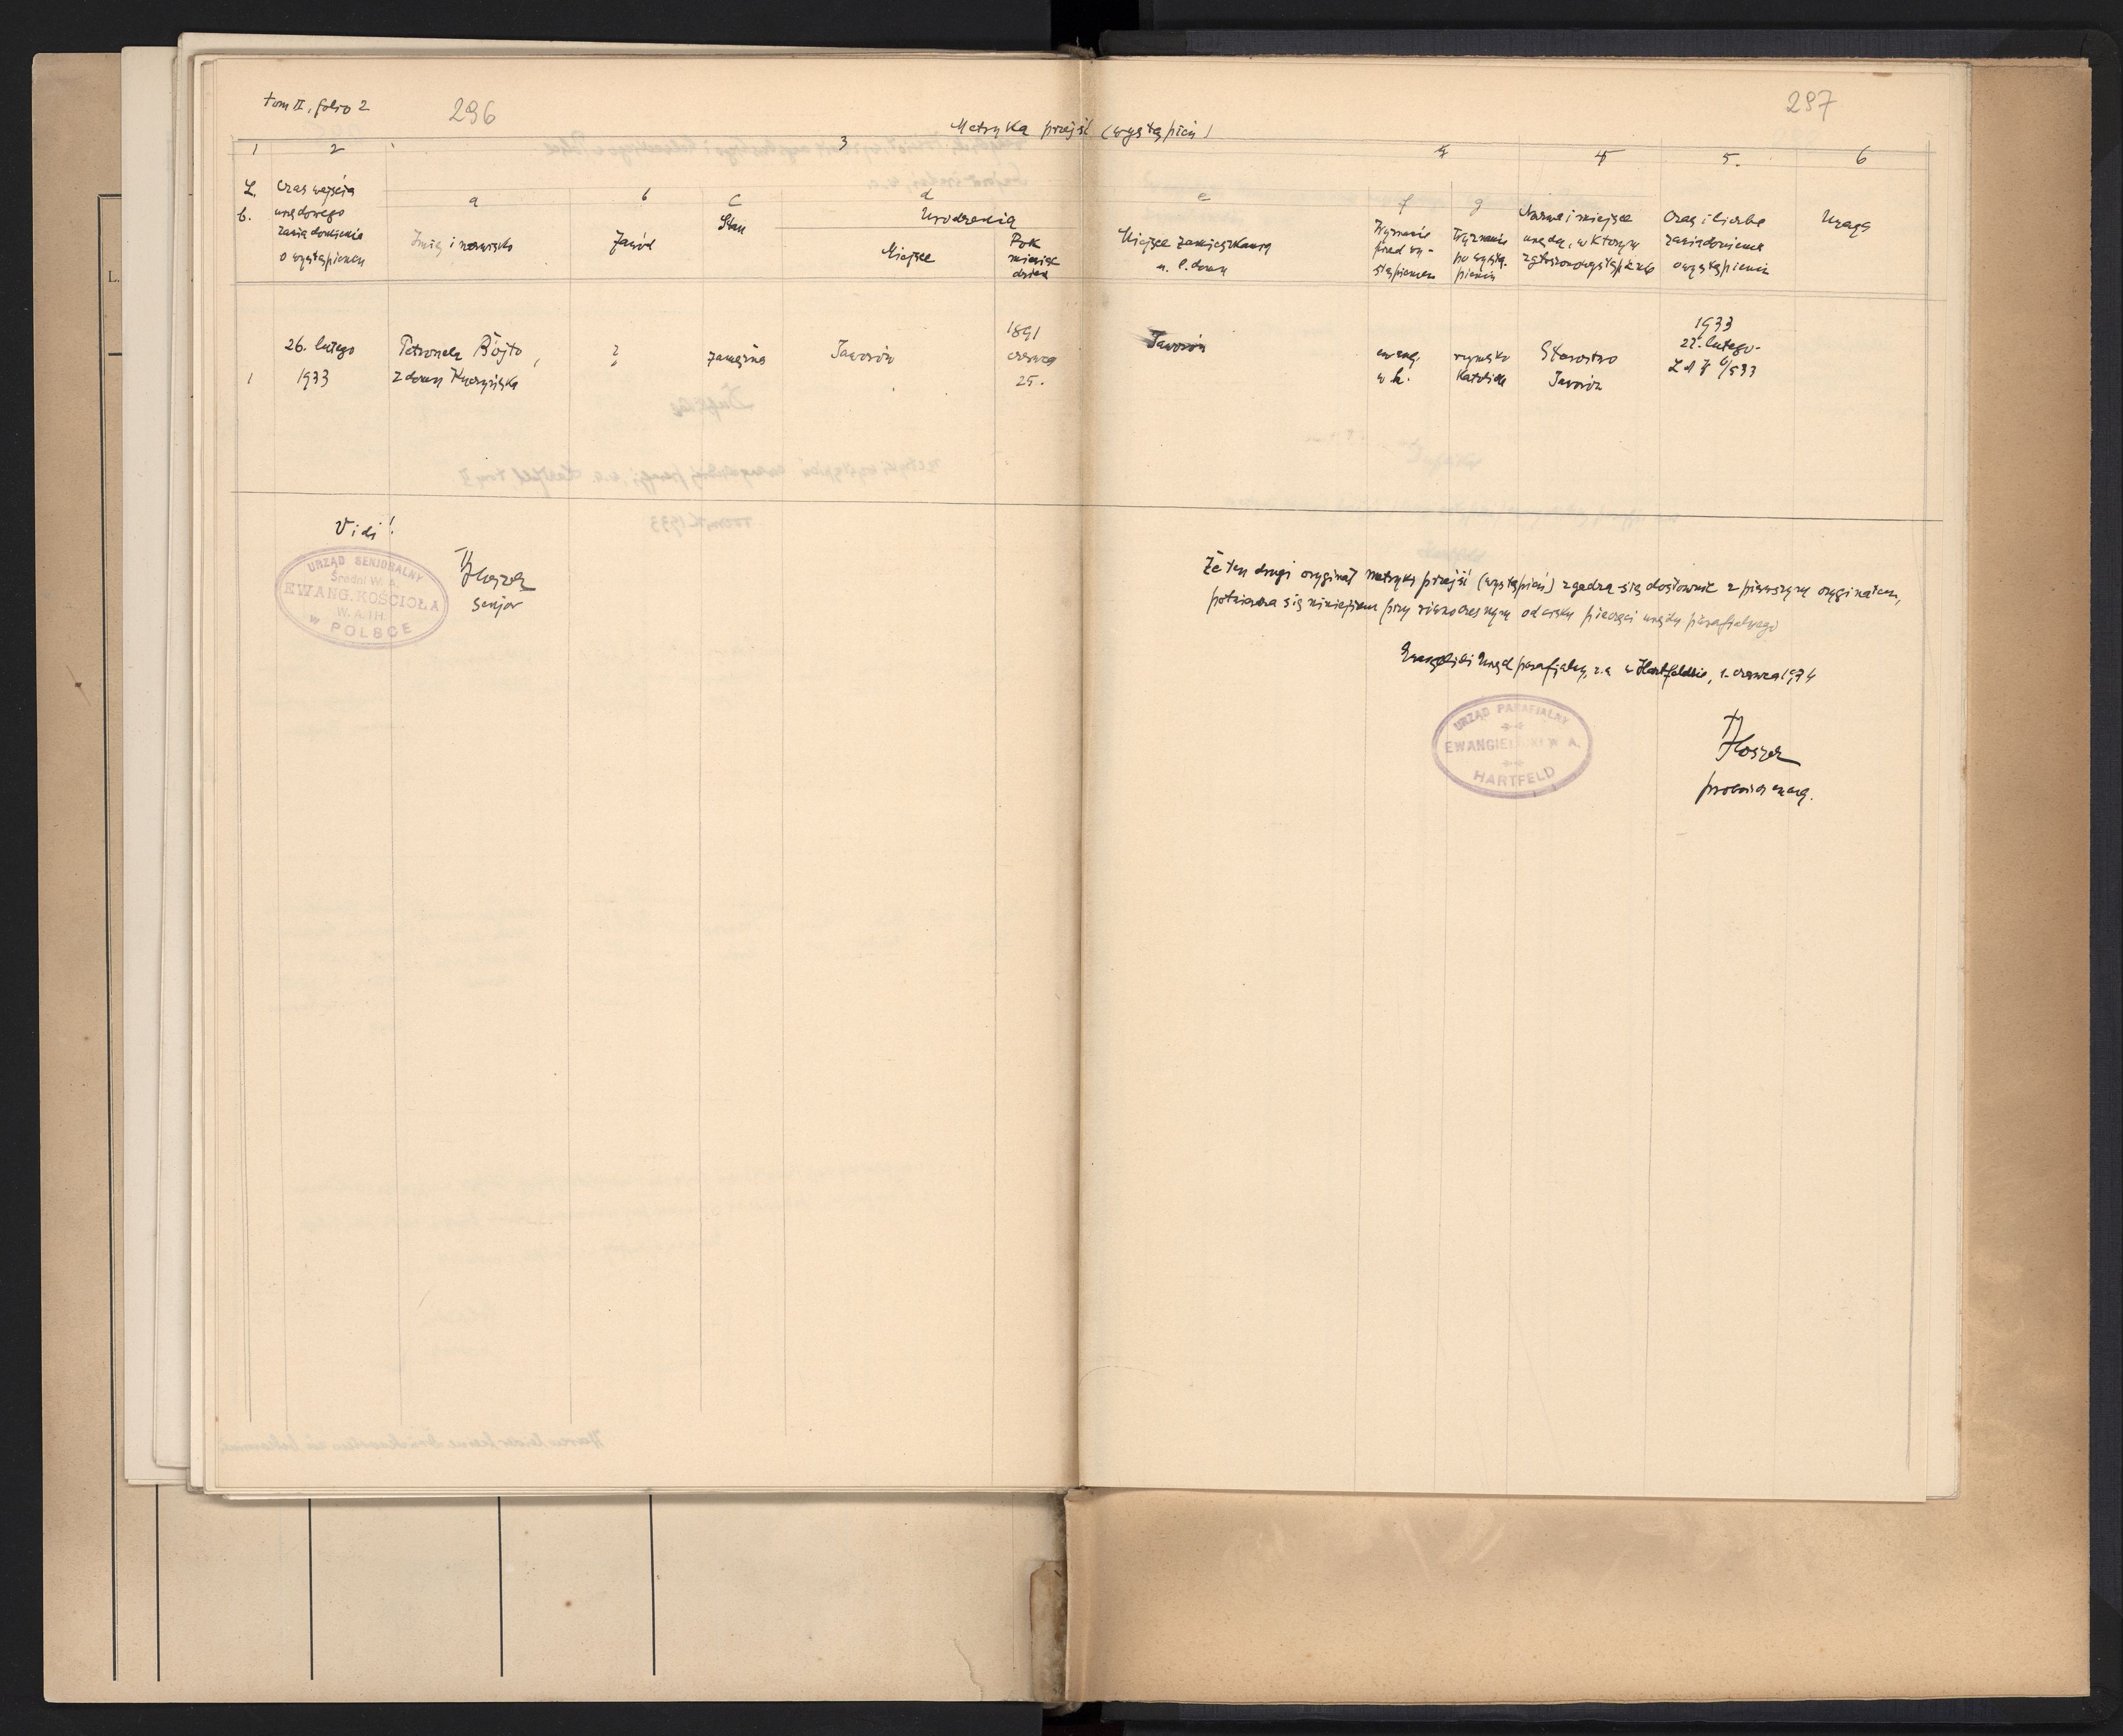 tom II, folio 2
296
297
Metryka przejść (wystąpień)
1 2 3 4 5. 6
L. b.
Czas wejścia
urzędowego
zawiadomienia
o wystąpieniu
a
Imię i nazwisko
b
Zawód
c
Stan
d
Urodzenia
Miejsce
Rok
miesiąc
dzień
e
Miejsce zamieszkania
n. l. domu
f
Wyznanie
przed wy-
stąpieniem
g
Wyznanie
po wystą-
pieniu
Nazwa i miejsce
urzędu, w którym
zgłoszono wystąpienie
Czas i liczba
zawiadomienia
o wystąpieniu
Uwaga
1
26. lutego
1933
Petronela Bojto,
z domu
?
zamężna
Jaworów
1891
czerwca
25.
Jaworów
ewang.
rzymsko
katolick
Starostwo
Jaworów
1933
22. lutego
Vidi!
senjor
URZĄD SENJORALNY
Średni W. A.
EWANG. KOŚCIOŁA
W. A. I H.
w POLSCE
Że ten drugi oryginał metryki przejść (wystąpień) zgadza się dosłownie z pierwszym oryginałem,
potwierdza się niniejszem przy równoczesnym odcisku pieczęci urzędu parafialnego
Ewangelicki Urząd parafjalny, w.a. w Hartfeldzie, 1. czerwca 1934
URZĄD PARAFJALNY
EWANGIELICKI W. A.
HARTFELD
ewang.